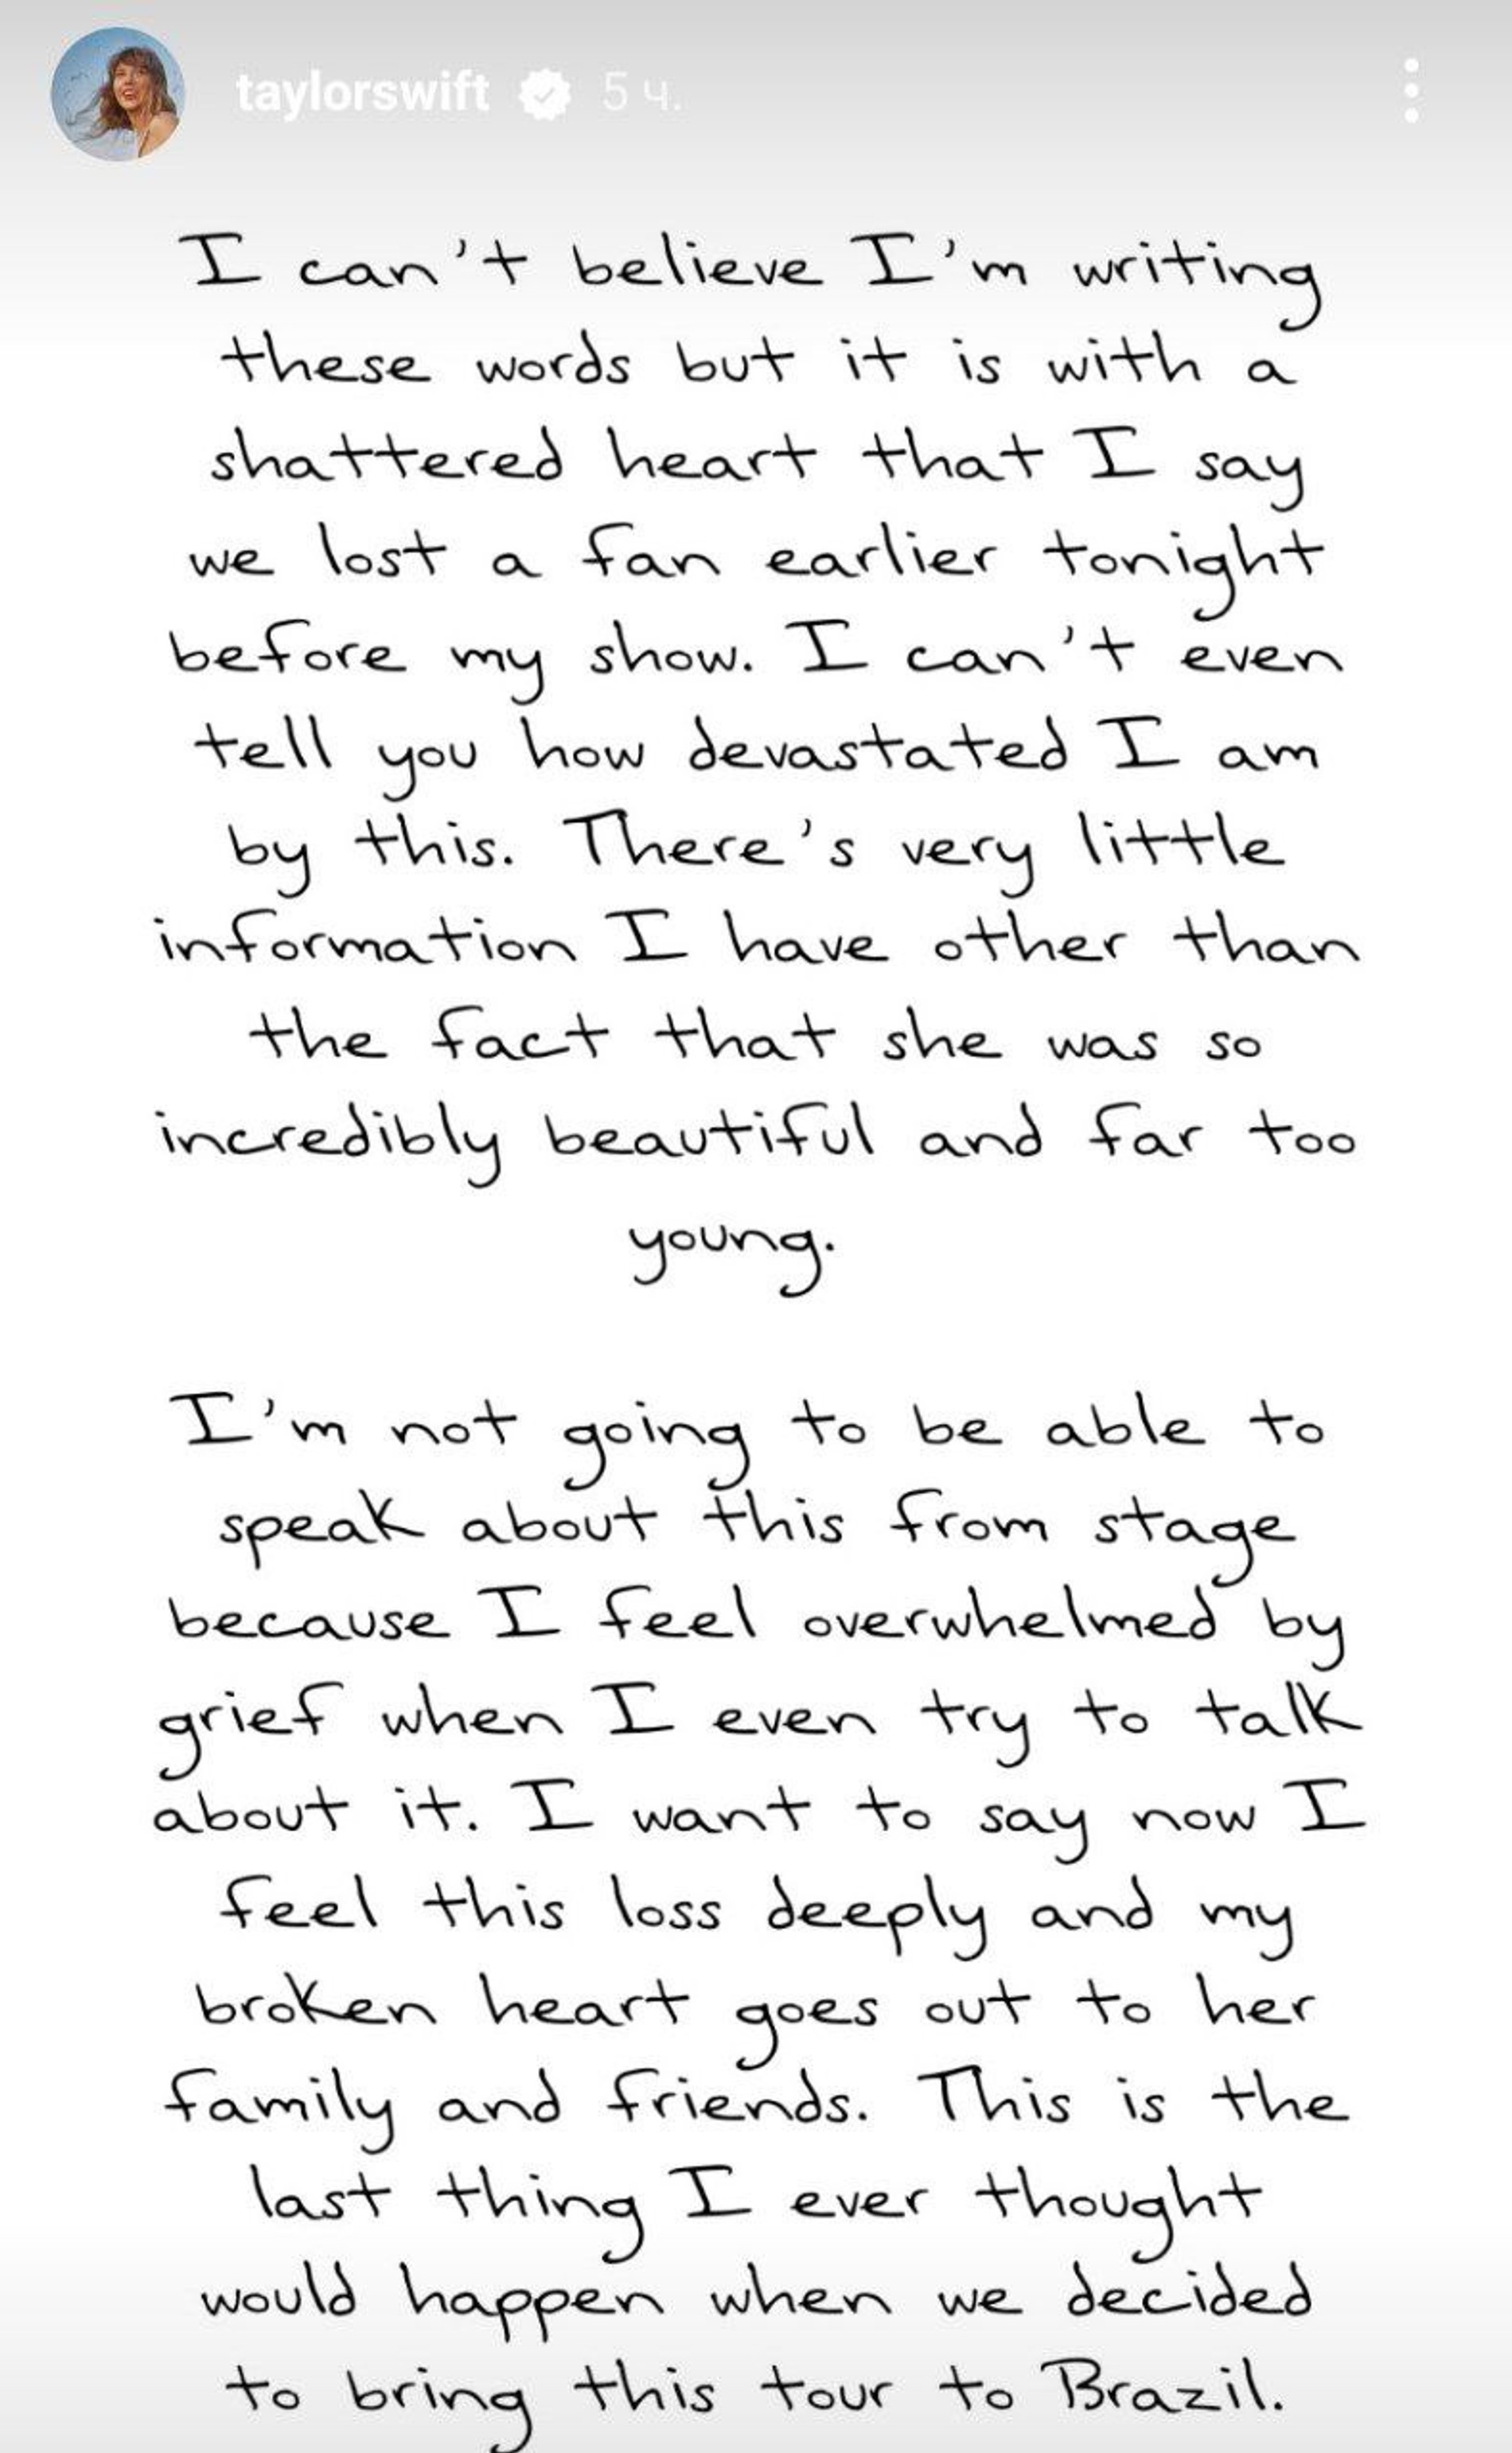 taylorswift 5 ч.
I can't believe I'm writing
these words but it is with a
shattered heart that I say
we lost a fan earlier tonight
before my show. I can't even
tell you how devastated I am
by this. There's very little
information I have other than
the fact that she was so
incredibly beautiful and far too
young.
I'm not going to be able to
speak about this from stage
because I feel overwhelmed by
grief when I even try to talk
about it. I want to say now I
feel this loss deeply and my
broken heart goes out to her
family and friends. This is the
last thing I ever thought
would happen when we decided
to bring this tour to Brazil.